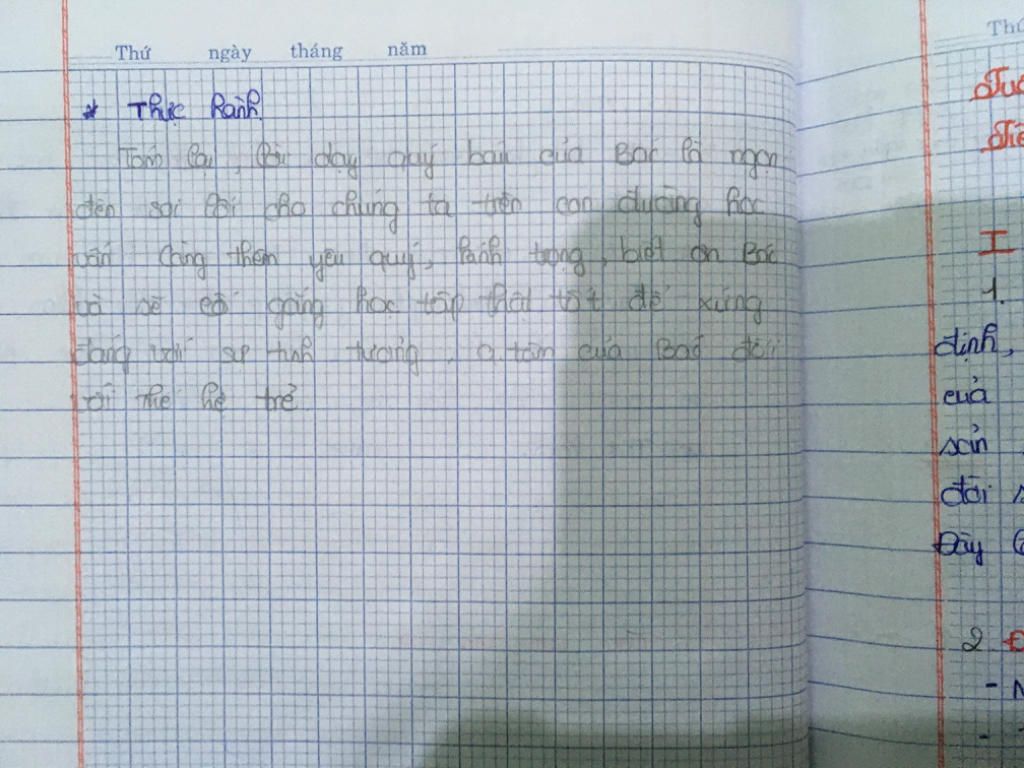 Thứ ngày tháng năm
* Thực hành
Tóm lại, lời dạy quý báu của Bác là ngọn
đèn soi lối cho chúng ta trên con đường học
vấn càng thêm yêu quý, kính trọng, biết ơn Bác
và sẽ cố gắng học tập thật tốt để xứng
đáng với sự tin tưởng, q tâm của Bác đối
với thế hệ trẻ.
Thứ
I
1.
định,
của
sản
đời
Đây
2.
-
-